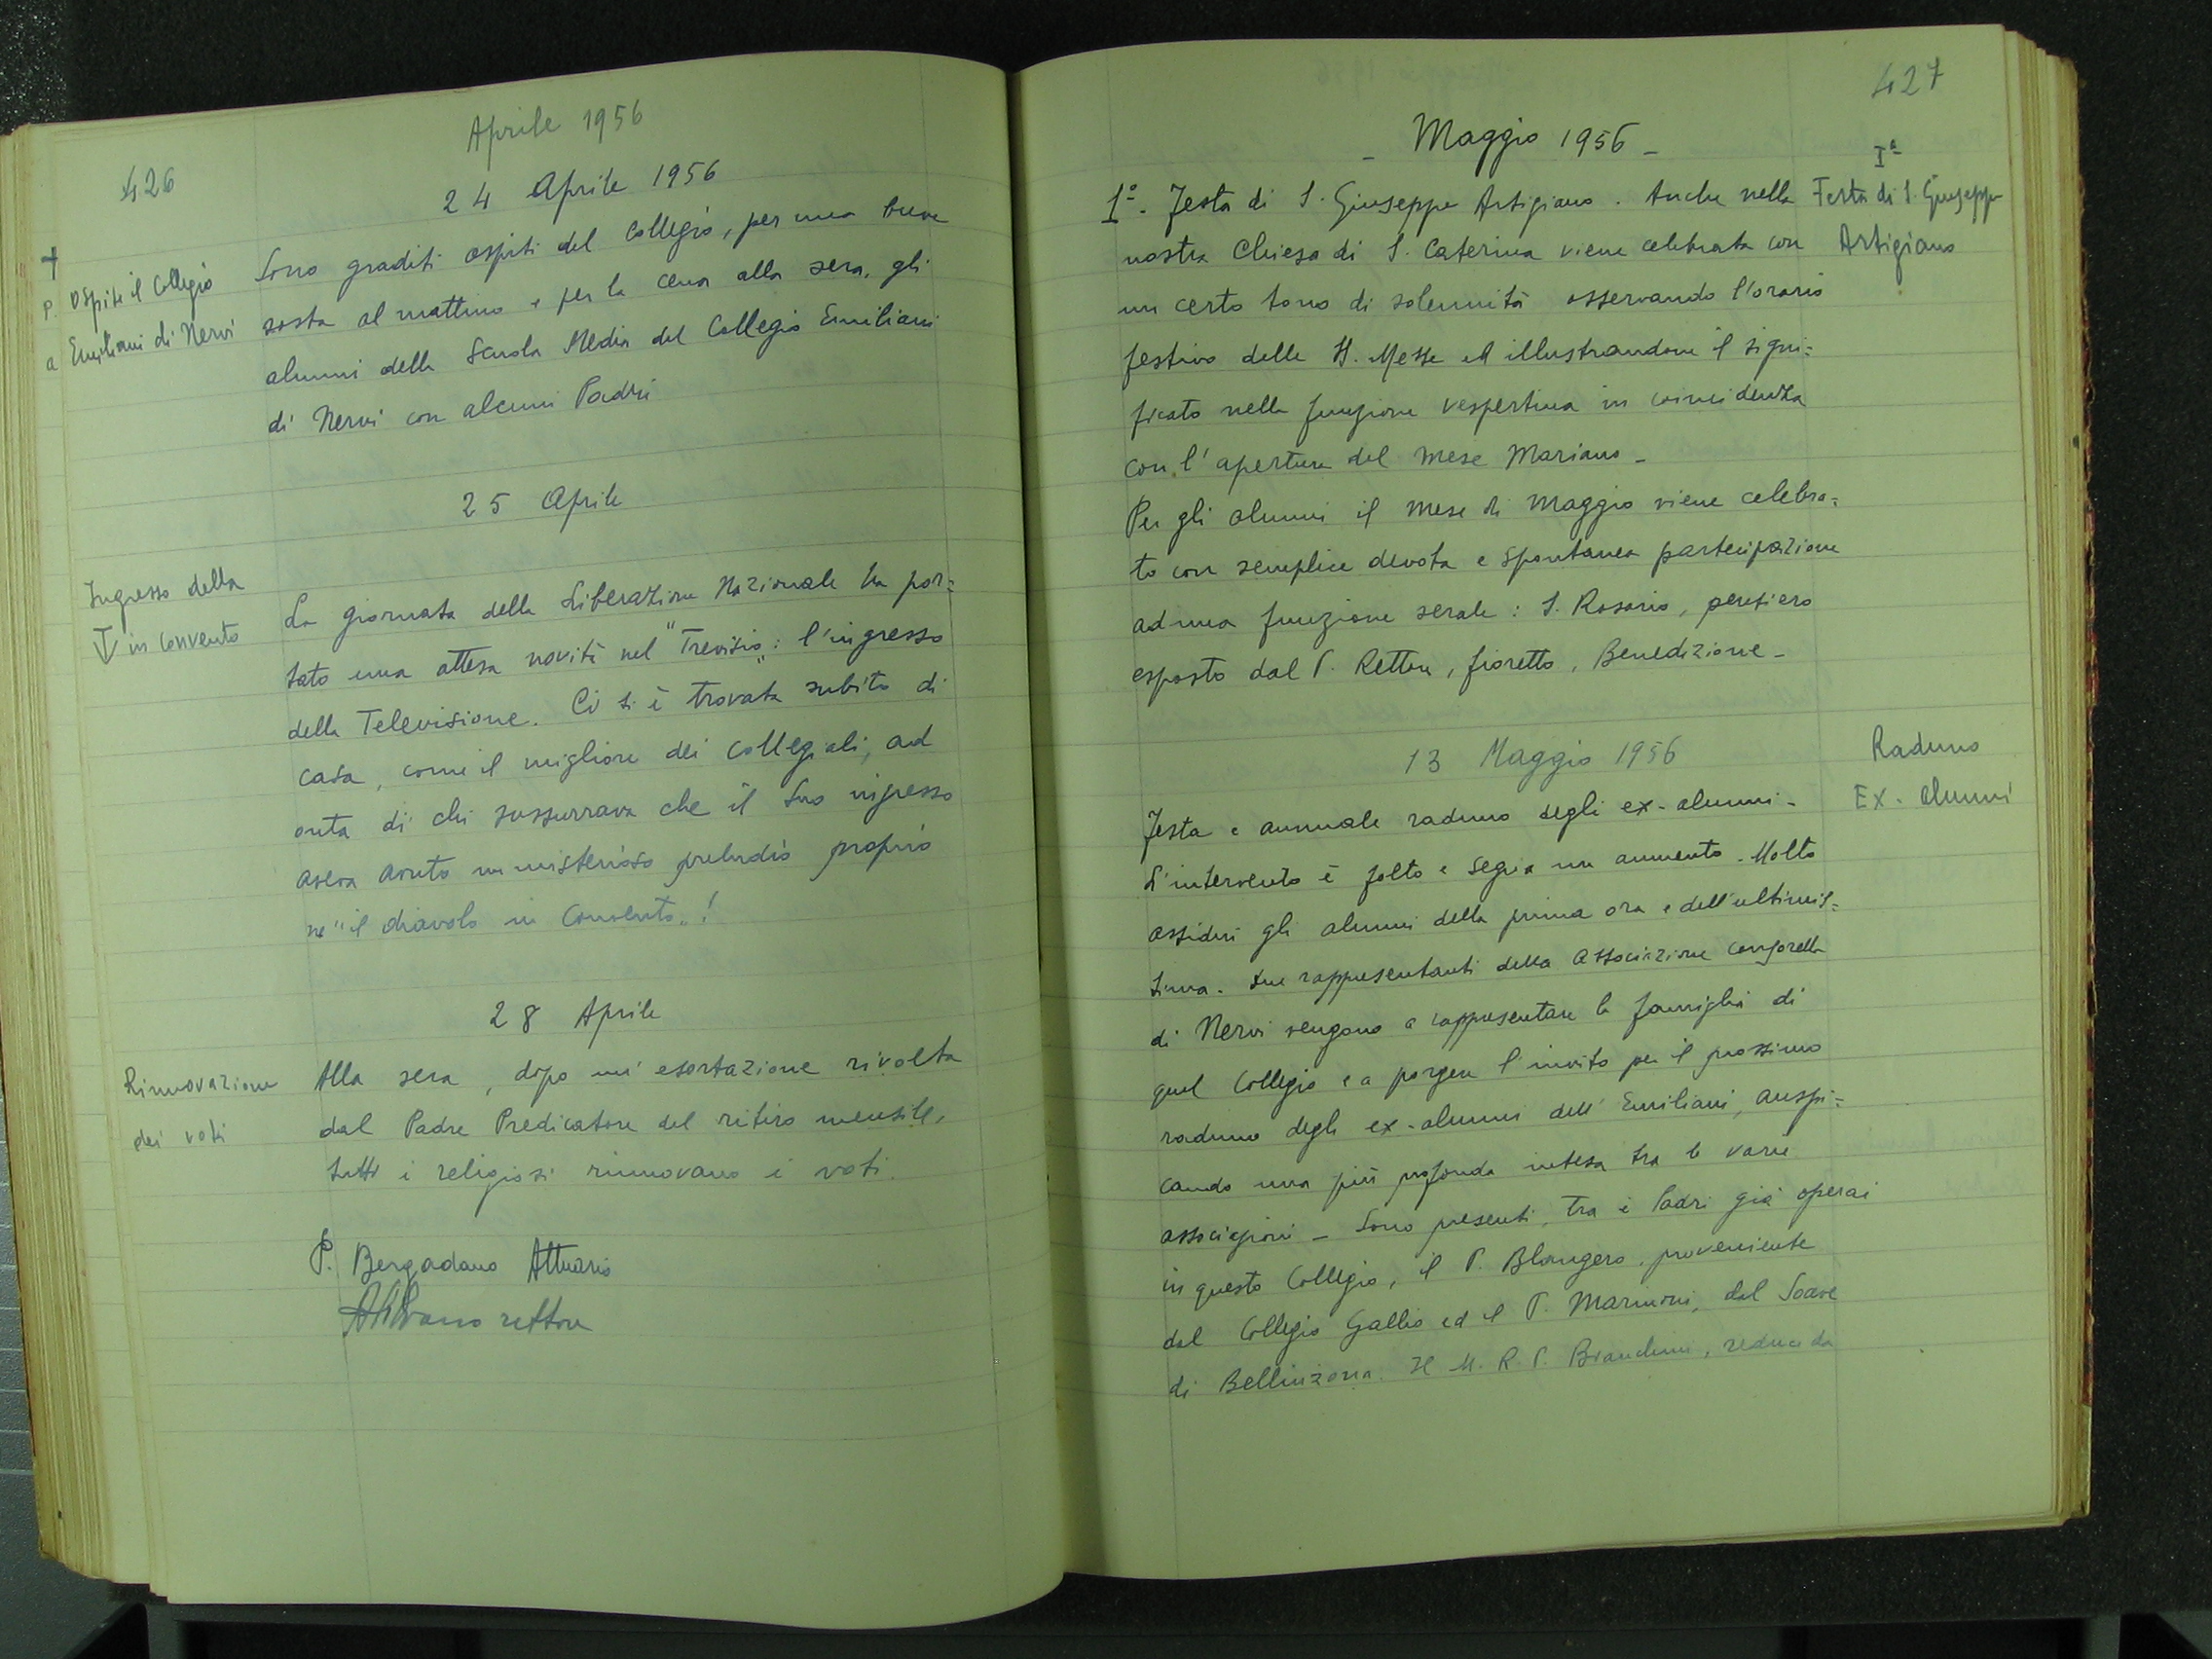 426
Aprile 1956
24 Aprile 1956
Ospite il Collegio
Emiliani di Nervi
Sono graditi ospiti del Collegio, per una breve
sosta al mattino e per la cena alla sera, gli
alunni della Scuola Media del Collegio Emiliani
di Nervi con alcuni Padri
25 Aprile
Ingresso della
TV in convento
La giornata della Liberazione Nazionale ha por=
tato una attesa novità nel "Trevisio": l'ingresso
della Televisione. Ci si è trovata subito di
casa, come il migliore dei collegiali, ad
onta di chi sussurrava che il suo ingresso
aveva avuto un misterioso preludio proprio
ne "il diavolo in Convento"!
28 Aprile
Rinnovazione
dei voti
Alla sera, dopo un'esortazione rivolta
dal Padre Predicatore del ritiro mensile,
tutti i religiosi rinnovano i voti.
P. Bergadano Attuario
rettore
427
- Maggio 1956 -
Iª
Festa di S. Giuseppe
Artigiano
1º. Festa di S. Giuseppe Artigiano. Anche nella
nostra Chiesa di S. Caterina viene celebrata con
un certo tono di solennità osservando l'orario
festivo delle SS. Messe ed illustrandone il signi=
ficato nella funzione vespertina in coincidenza
con l'apertura del mese Mariano -
Per gli alunni il mese di Maggio viene celebra=
to con semplice devota e spontanea partecipazione
ad una funzione serale: S. Rosario, pensiero
esposto dal P. Rettore, fioretto, Benedizione -
13 Maggio 1956
Raduno
Ex-alunni
Festa e annuale raduno degli ex-alunni -
L'intervento è folto e segna un aumento. Molto
assidui gli alunni della prima ora e dell'ultimis=
sima. Due rappresentanti della Associazione consorella
di Nervi vengono a rappresentare la famiglia di
quel Collegio e a porgere l'invito per il prossimo
raduno degli ex-alunni dell'Emiliani, auspi=
cando una più profonda intesa tra le varie
associazioni - Sono presenti, tra i Padri già operai
in questo Collegio, il P. Blangero, proveniente
dal Collegio Gallio ed il P. Marinoni, dal Soave
di Bellinzona. Il M. R. P. Brandino, reduce da